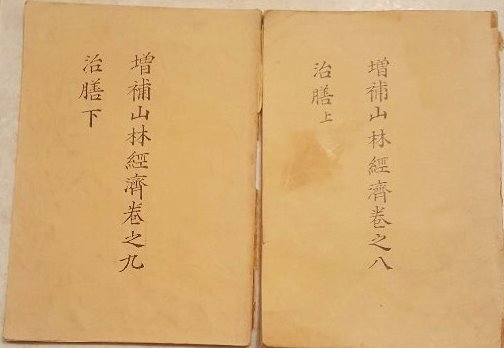 增補山林經濟卷之八
治膳上
增補山林經濟卷之九
治膳下